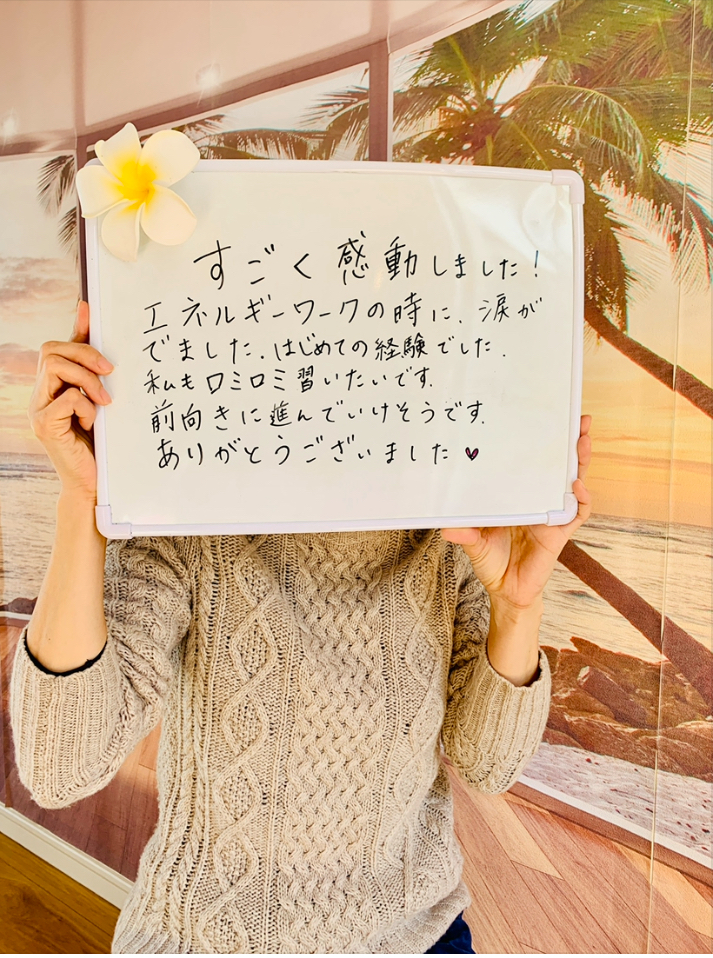 すごく感動しました!
エネルギーワークの時に、涙が
でました。はじめての経験でした。
私もロミロミ習いたいです。
前向きに進んでいけそうです。
ありがとうございました♥